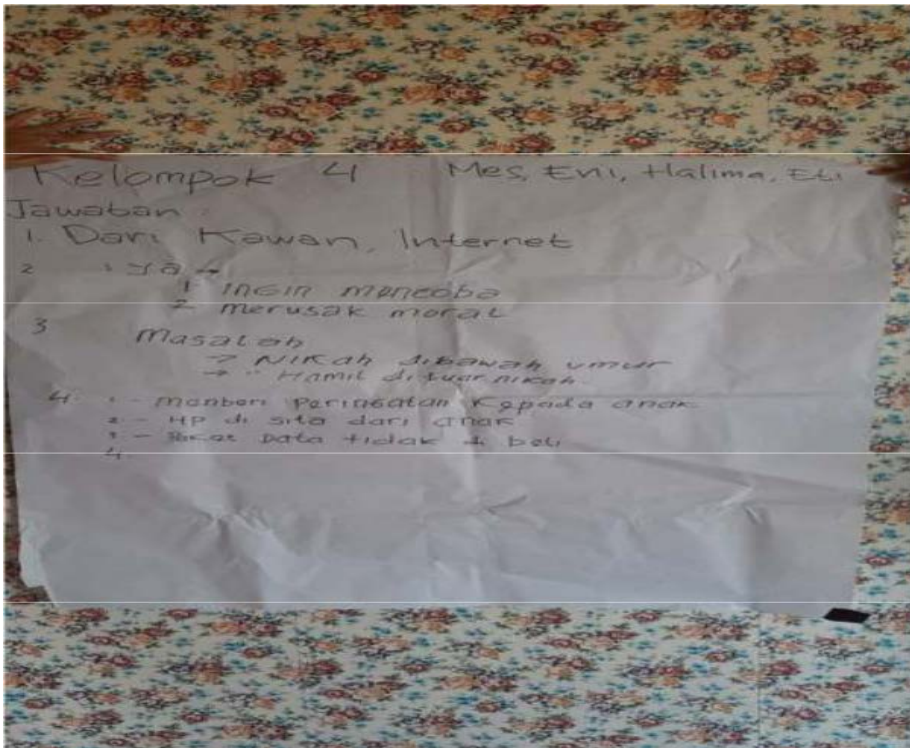 Kelompok 4 Mes, Eni, Halima, Eti
Jawaban :
1. Dari Kawan, Internet
2 : ya →
1. inGin mencoba
2 merusak moral
3
Masalah
→ Nikah dibawah umur
→ " Hamil diluar nikah
4. 1 - monberi PerinGatan Kepada anak
2 - HP di sita dari anak
3 - Paket Data tidak di beli
4